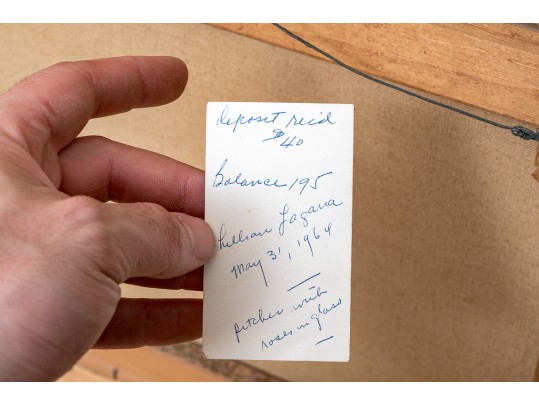 deposit rec'd
$40
Balance 195
Lillian Lagana
May 31, 1964
pitcher with
roses in glass